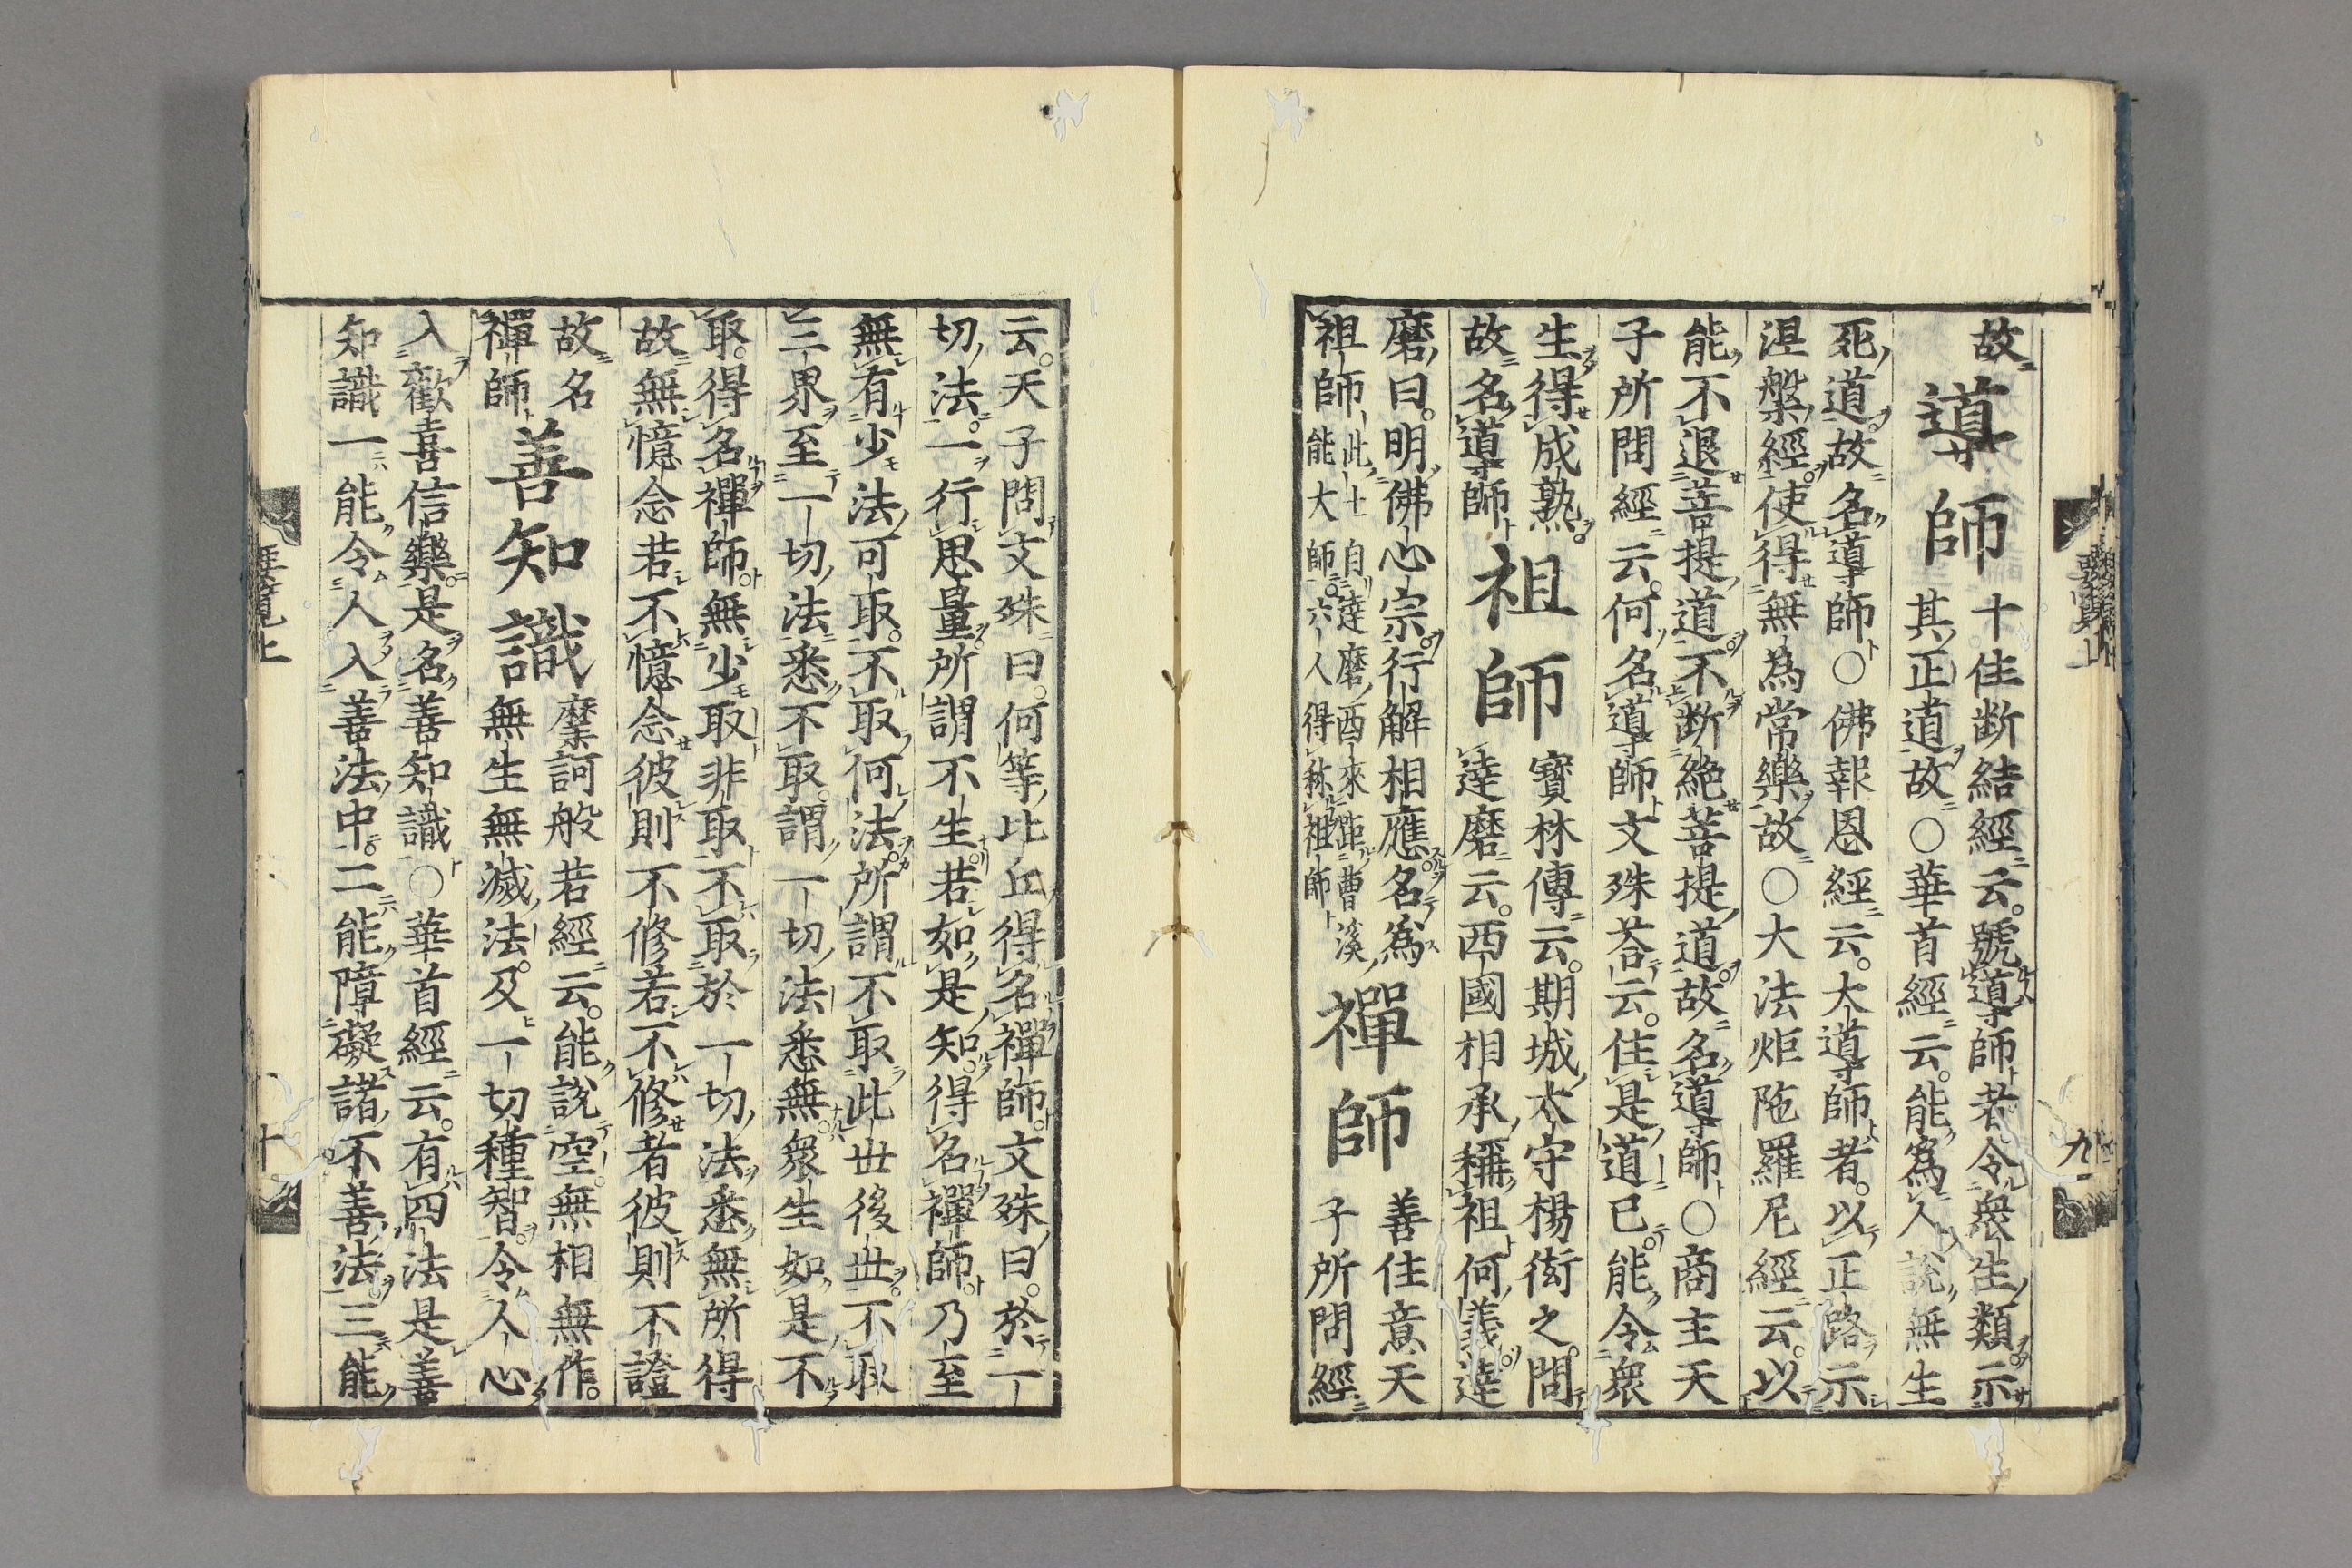 故
導師
十住断結經云。號導師者令衆生類。示
其正道故○華首經云。能為人說無生
死道。故名導師○佛報恩經云。大導師者。以正路示
涅槃經。使得無為常樂故○大法炬陁羅尼經云。以
能不退菩提道。不断絶菩提道。故名導師○商主天
子所問經云。何名導師文殊荅云。住是道已。能令衆
生得成熟。
故名導師
祖師
寶林傳云。期城太守楊衒之。問
達磨云。西國相承稱祖何義。達
磨曰。明佛心宗。行解相應。名為
祖師
此土自達磨西來距曹溪
能大師。六人得稱祖師
禪師
善住意天
子所問經
云。天子問文殊曰。何等比丘得名禪師。文殊曰。於一
切法。一行思量。所謂不生。若如是知。得名禪師。乃至
無有少法可取。不取何法。所謂不取此世後世。不取
三界至一切法悉不取。謂一切法悉無衆生如是不
取。得名禪師。無少取非取不取於一切法悉無所得
故無憶念若不憶念彼則不修若不修者彼則不證
故名
禪師
善知識
摩訶般若經云。能說空。無相無作。
無生無滅法。及一切種智。令人心
入歡喜信樂。是名善知識○華首經云。有四法是善
知識一能令人入善法中。二能障礙諸不善法。三能
釋氏要覽上
九
要覽上
十